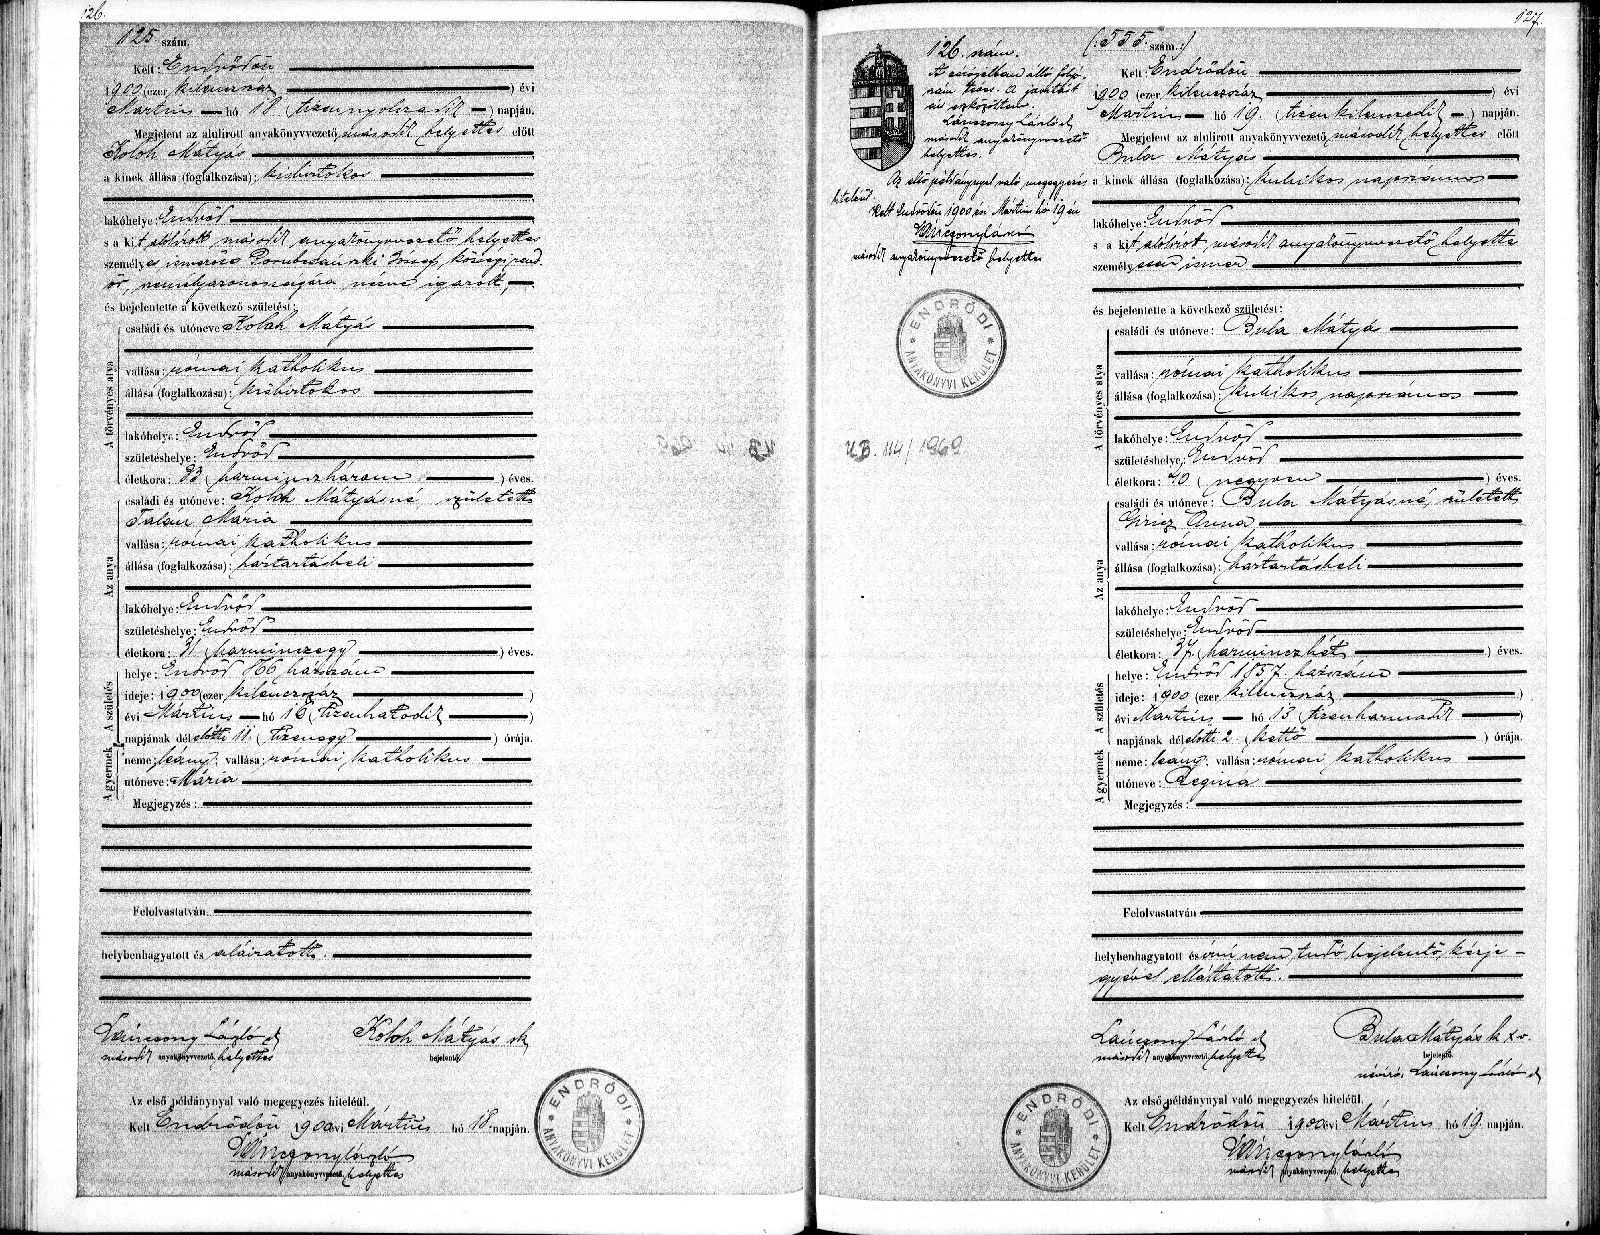 126.
125 szám.
Kelt: Endrődön
1900 (ezer kilenczszáz ) évi
Martius hó 18 (tizennyolczadik ) napján.
Megjelent az alulirott anyakönyvvezető, második helyettes előtt
Koloh Mátyás
a kinek állása (foglalkozása): kisbirtokos
lakóhelye: Endrőd
s a kit, alólirott második anyakönyvvezető helyettes
személyes ismerőse József, községi rend
őr, személyazonosságára nézve igazolt,
és bejelentette a következő születést:
A törvényes atya
családi és utóneve Koloh Mátyás
vallása: római katholikus
állása (foglalkozása): kisbirtokos
lakóhelye: Endrőd
születéshelye: Endrőd
életkora: 33 (harminczhárom ) éves.
Az anya
családi és utóneve: Koloh Mátyásné, született
Talán Mária
vallása: római katholikus
állása (foglalkozása): háztartásbeli
lakóhelye: Endrőd
születéshelye: Endrőd
életkora: 31 (harminczegy ) éves.
A születés
helye: Endrőd 766 házszám
ideje: 1900 (ezer kilenczszáz )
évi Martius hó 16 (tizenhatodik )
napjának délelőtti 11. (tizenegy ) órája.
A gyermek
neme: leány; vallása: római katholikus
utóneve: Mária
Megjegyzés:
Felolvastatván,
helybenhagyatott és aláiratott.
Lánczony László sk
második anyakönyvvezető, helyettes
Koloh Mátyás sk
bejelentő
Az első példánynyal való megegyezés hiteléül.
Kelt Endrődön 1900 évi Mártius hó 18. napján.
Lánczony László
második anyakönyvvezető, helyettes
ENDRŐDI ANYAKÖNYVI KERÜLET
127.
126. szám.
A zárójelben álló folyó-
szám téves. A javitást
én eszközöltem.
Lánczony László sk
második anyakönyvvezető
helyettes.
Az első példánynyal való megegyezés
hiteléül
Kelt Endrődön 1900 évi Martius hó 19 én
Lánczony László
második anyakönyvvezető helyettes
ENDRŐDI ANYAKÖNYVI KERÜLET
U.B. 114/1969
(: 555. szám.:)
Kelt: Endrődön
1900 (ezer kilenczszáz ) évi
Martius hó 19. (tizenkilenczedik ) napján.
Megjelent az alulirott anyakönyvvezető, második helyettes előtt
Bula Mátyás
a kinek állása (foglalkozása): kubikos napszámos
lakóhelye: Endrőd
s a kit, alólirott, második anyakönyvvezető, helyettes
személyesen ismer
és bejelentette a következő születést:
A törvényes atya
családi és utóneve: Bula Mátyás
vallása: római katholikus
állása (foglalkozása): kubikos napszámos
lakóhelye: Endrőd
születéshelye: Endrőd
életkora: 40 (negyven ) éves.
Az anya
családi és utóneve: Bula Mátyásné, született
Giricz Anna
vallása: római katholikus
állása (foglalkozása): háztartásbeli
lakóhelye: Endrőd
születéshelye: Endrőd
életkora: 37. (harminczhét ) éves.
A születés
helye: Endrőd 1857. házszám
ideje: 1900 (ezer kilenczszáz )
évi Martius hó 13. (tizenharmadik )
napjának délelőtti 2. (kettő ) órája.
A gyermek
neme: leány; vallása: római katholikus
utóneve: Regina
Megjegyzés:
Felolvastatván
helybenhagyatott és irni nem tudó bejelentő, kézje-
gyével elláttatott.
Lánczony László sk
második anyakönyvvezető, helyettes
Bula Mátyás k x v.
bejelentő
névíró: Lánczony László sk
Az első példánynyal való megegyezés hiteléül.
Kelt Endrődön 1900 évi Martius hó 19. napján.
Lánczony László
második anyakönyvvezető, helyettes
ENDRŐDI ANYAKÖNYVI KERÜLET